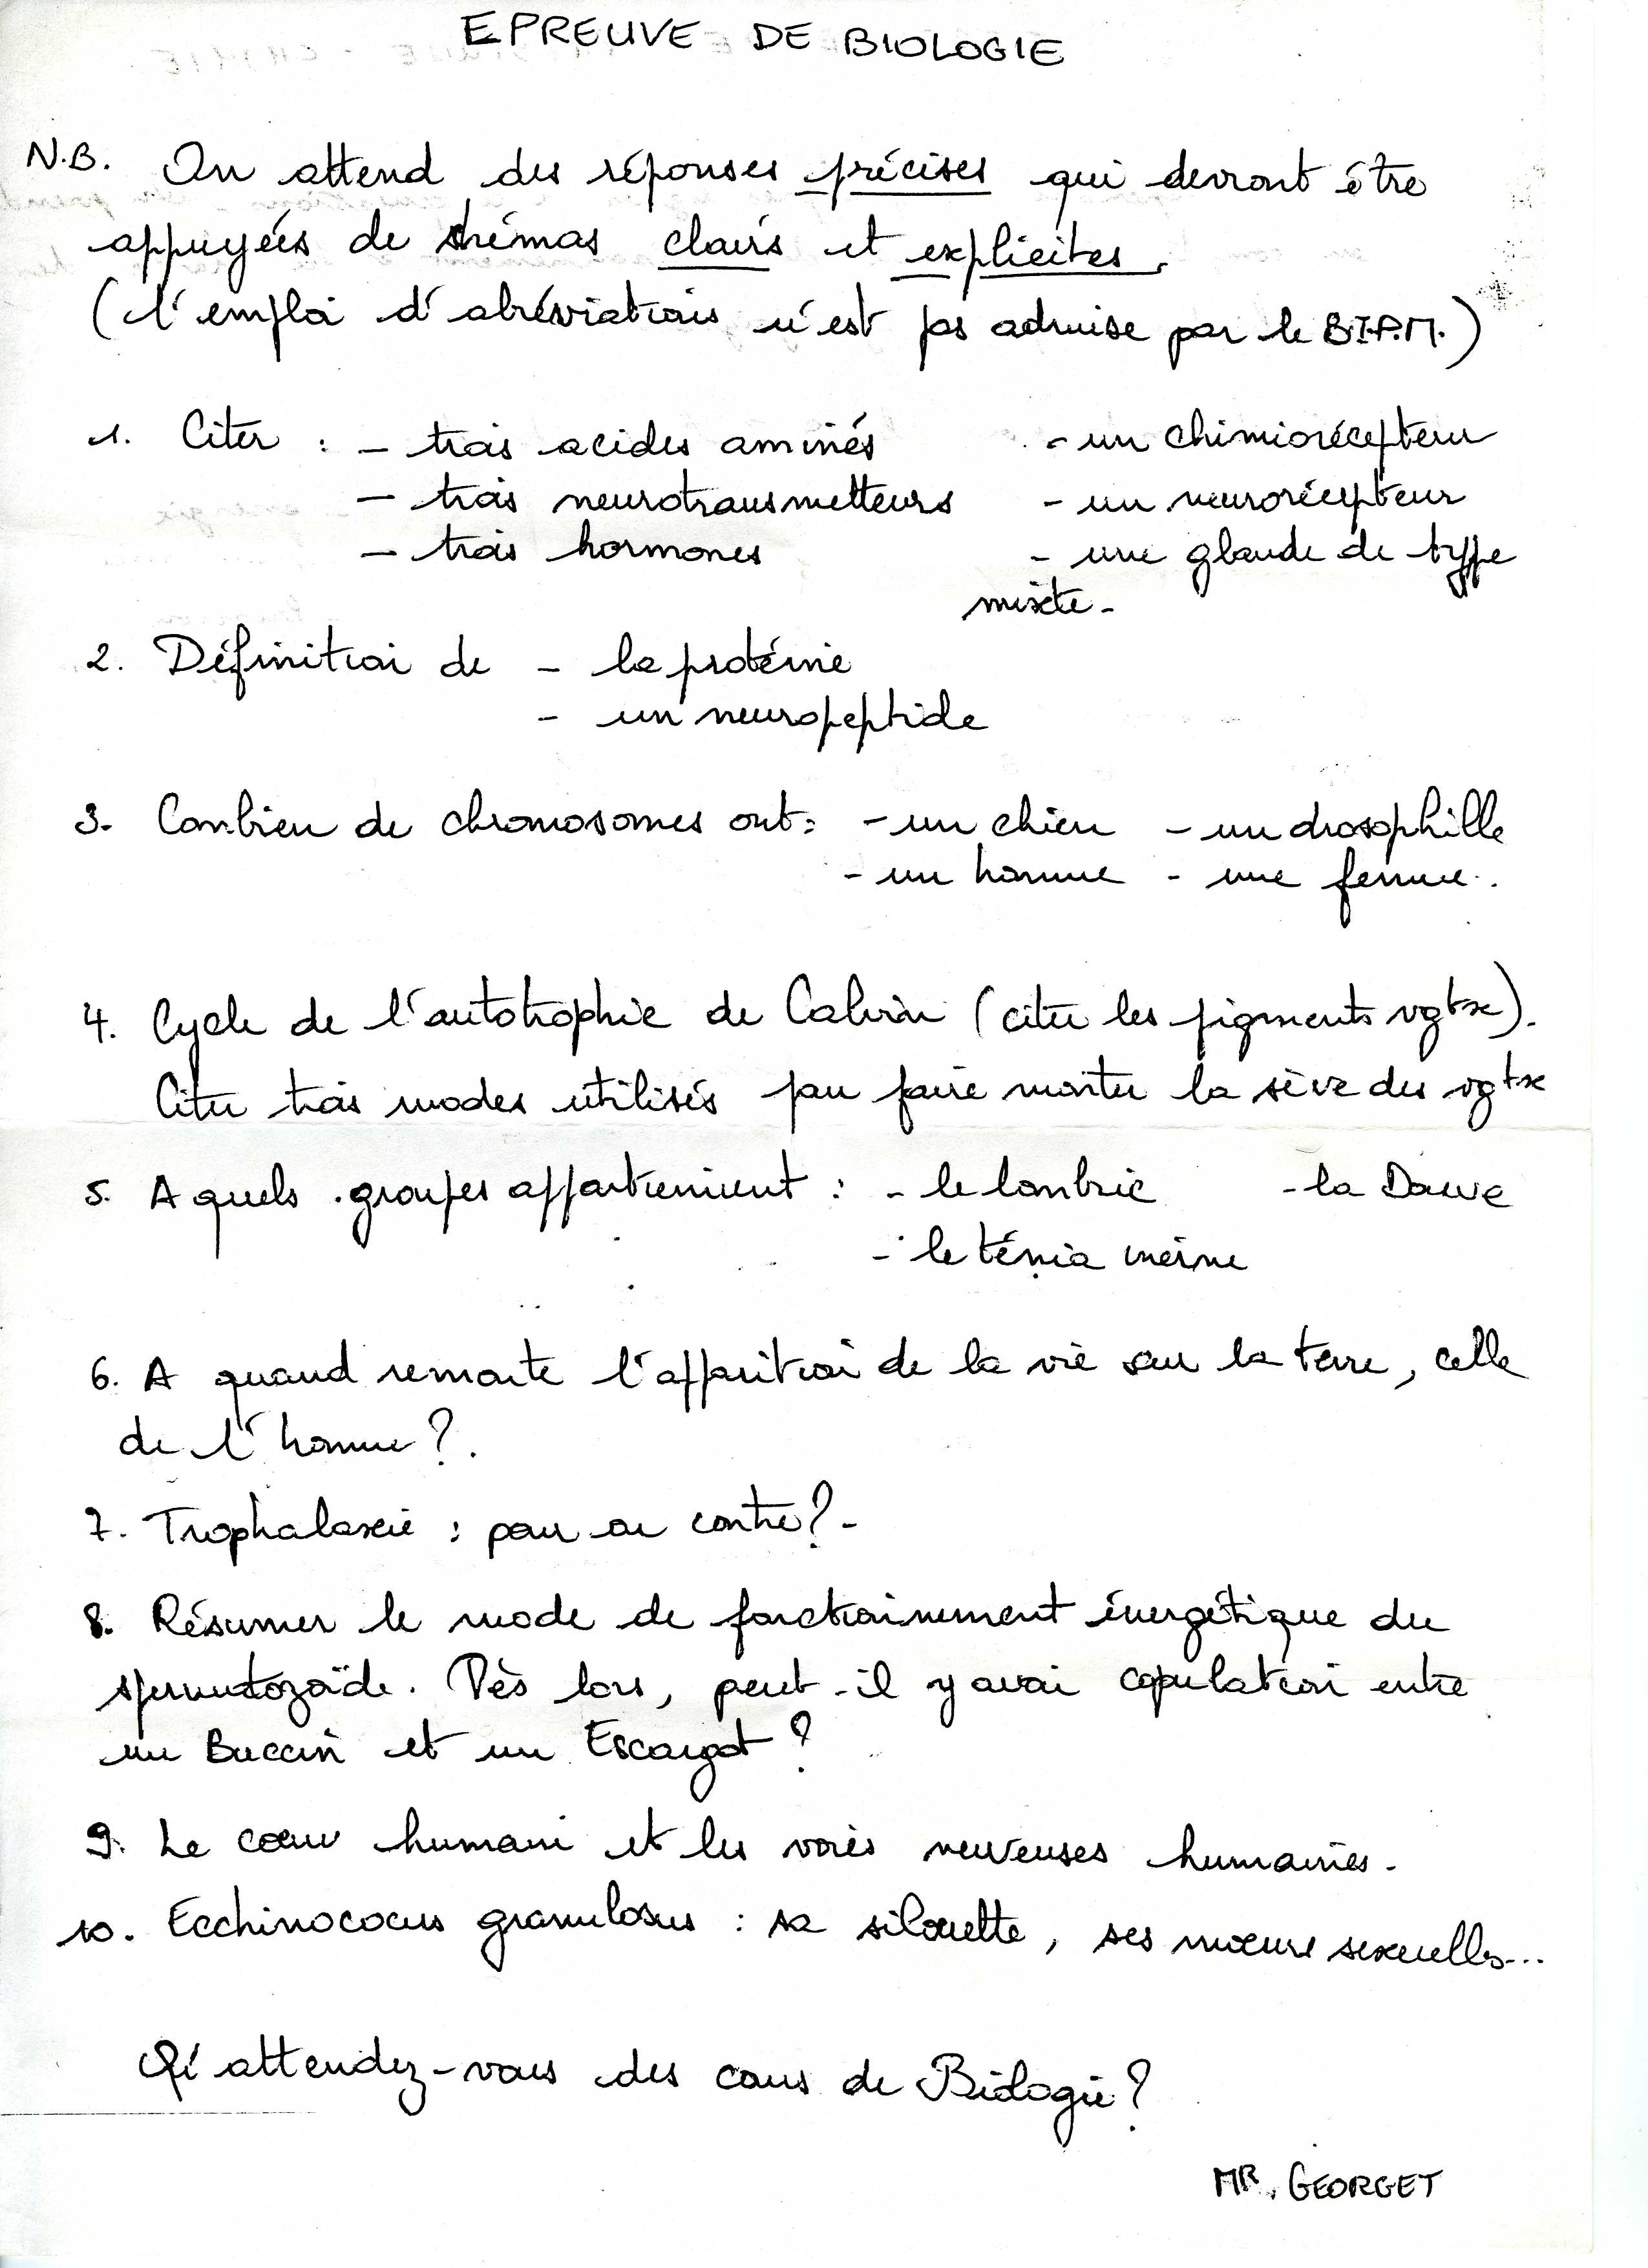 EPREUVE DE BIOLOGIE
N.B. On attend des réponses précises qui devront être
appuyées de shémas clairs et explicites.
(l'emploi d'abréviations n'est pas admise par le B.I.P.M.)
1. Citer : - trois acides aminés - un chimiorécepteur
- trois neurotransmetteurs - un neurorécepteur
- trois hormones - une glande de type
mixte -
2. Définition de - la protéine
- un neuropeptide
3. Combien de chromosomes ont : - un chien - un drosophille
- un homme - une femme.
4. Cycle de l'autotrophie de Calvin (citer les pigments vgtx).
Citer trois modes utilisés pour faire monter la sève des vgtx
5. A quels groupes appartiennent : - le lombric - la Douve
- le ténia inerme
6. A quand remonte l'apparition de la vie sur la terre, celle
de l'homme ?.
7. Trophalaxie : pour ou contre ? -
8. Résumer le mode de fonctionnement énergétique du
spermatozoïde. Dès lors, peut-il y avoir copulation entre
un Buccin et un Escargot ?
9. Le coeur humain et les voies nerveuses humaines.
10. Ecchinococus granulosus : sa silouette, ses moeurs sexuelles...
Qu'attendez-vous des cours de Biologie ?
MR. GEORGET